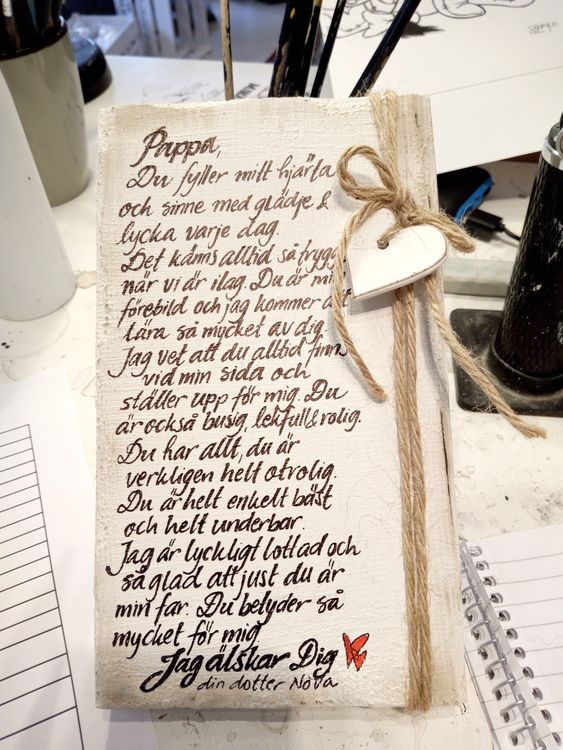 Pappa,
Du fyller mitt hjärta
och sinne med glädje &
lycka varje dag.
Det känns alltid så trygg
när vi är ilag. Du är min
förebild och jag kommer att
lära så mycket av dig.
Jag vet att du alltid finns
vid min sida och
ställer upp för mig. Du
är också busig, lekfull & rolig.
Du har allt, du är
verkligen helt otrolig.
Du är helt enkelt bäst
och helt underbar.
Jag är lyckligt lottad och
så glad att just du är
min far. Du betyder så
mycket för mig
Jag älskar Dig
din dotter Nova
SUPER